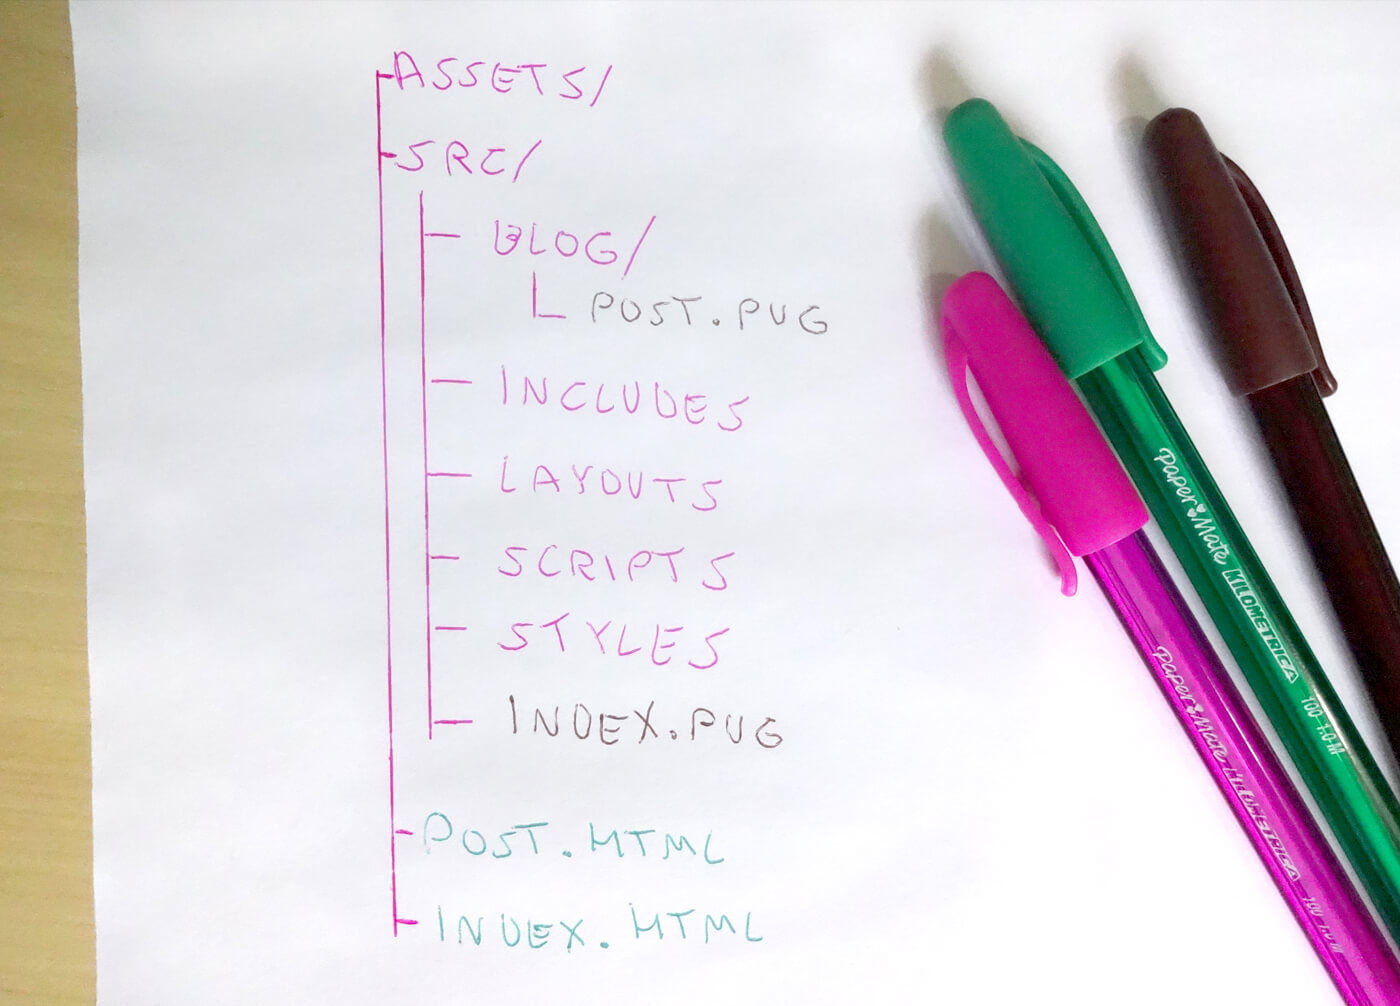 ASSETS/
SRC/
BLOG/
POST.PUG
INCLUDES
LAYOUTS
SCRIPTS
STYLES
INDEX.PUG
POST.HTML
INDEX.HTML
Paper Mate KILOMETRICA 100 1.0 M
Paper Mate KILOMETRICA 100 1.0 M